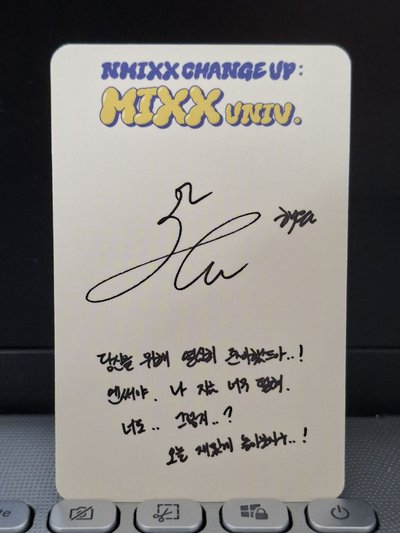 NMIXX CHANGE UP:
MIXX UNIV.
당신을 위해 열심히 준비했으니..!
엔써야. 나 지금 너무 떨려.
너도.. 그렇지..?
오늘 재밌게 놀아보자구..!